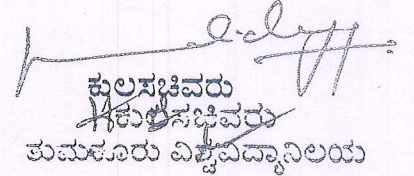 ಕುಲಸಚಿವರು
ಕುಲಸಚಿವರು
ತುಮಕೂರು ವಿಶ್ವವಿದ್ಯಾನಿಲಯ